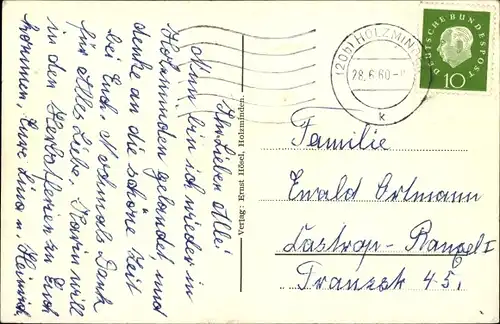 Ihr Lieben Alle!
Nun bin ich wieder in
Holzminden gelandet und
denke an die schöne Zeit
bei Euch. Nochmals Dank
für Alles Liebe. Karin will
in den Herbstferien zu Euch
kommen, Eure Lina u. Heinrich
Verlag: Ernst Hösel, Holzminden.
(20b) HOLZMINDEN
28.6.60
k
DEUTSCHE BUNDESPOST
10
Familie
Ewald Ortmann
Castrop-Rauxel I
Franzstr 45,